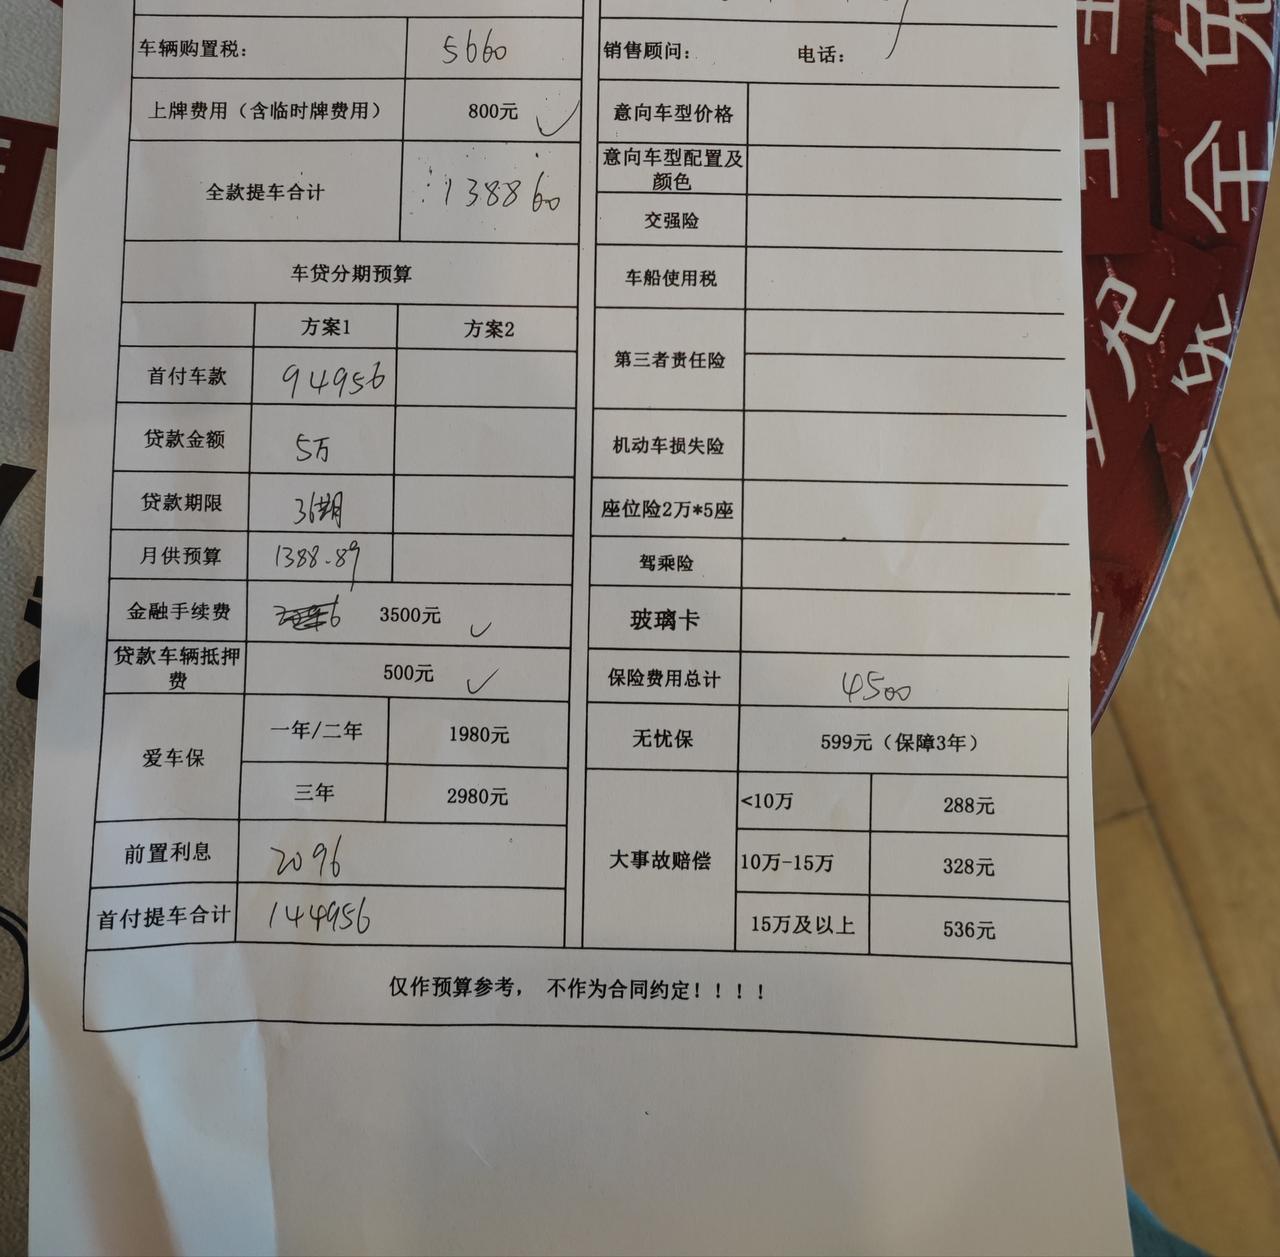 车辆购置税： 5660
上牌费用（含临时牌费用） 800元
全款提车合计 138860
车贷分期预算
方案1 方案2
首付车款 94956
贷款金额 5万
贷款期限 36期
月供预算 1388.89
金融手续费 3500元
贷款车辆抵押费 500元
爱车保
一年/二年 1980元
三年 2980元
前置利息 2096
首付提车合计 144956
销售顾问： 电话：
意向车型价格
意向车型配置及
颜色
交强险
车船使用税
第三者责任险
机动车损失险
座位险2万*5座
驾乘险
玻璃卡
保险费用总计 4500
无忧保 599元（保障3年）
大事故赔偿
<10万 288元
10万-15万 328元
15万及以上 536元
仅作预算参考， 不作为合同约定！！！！